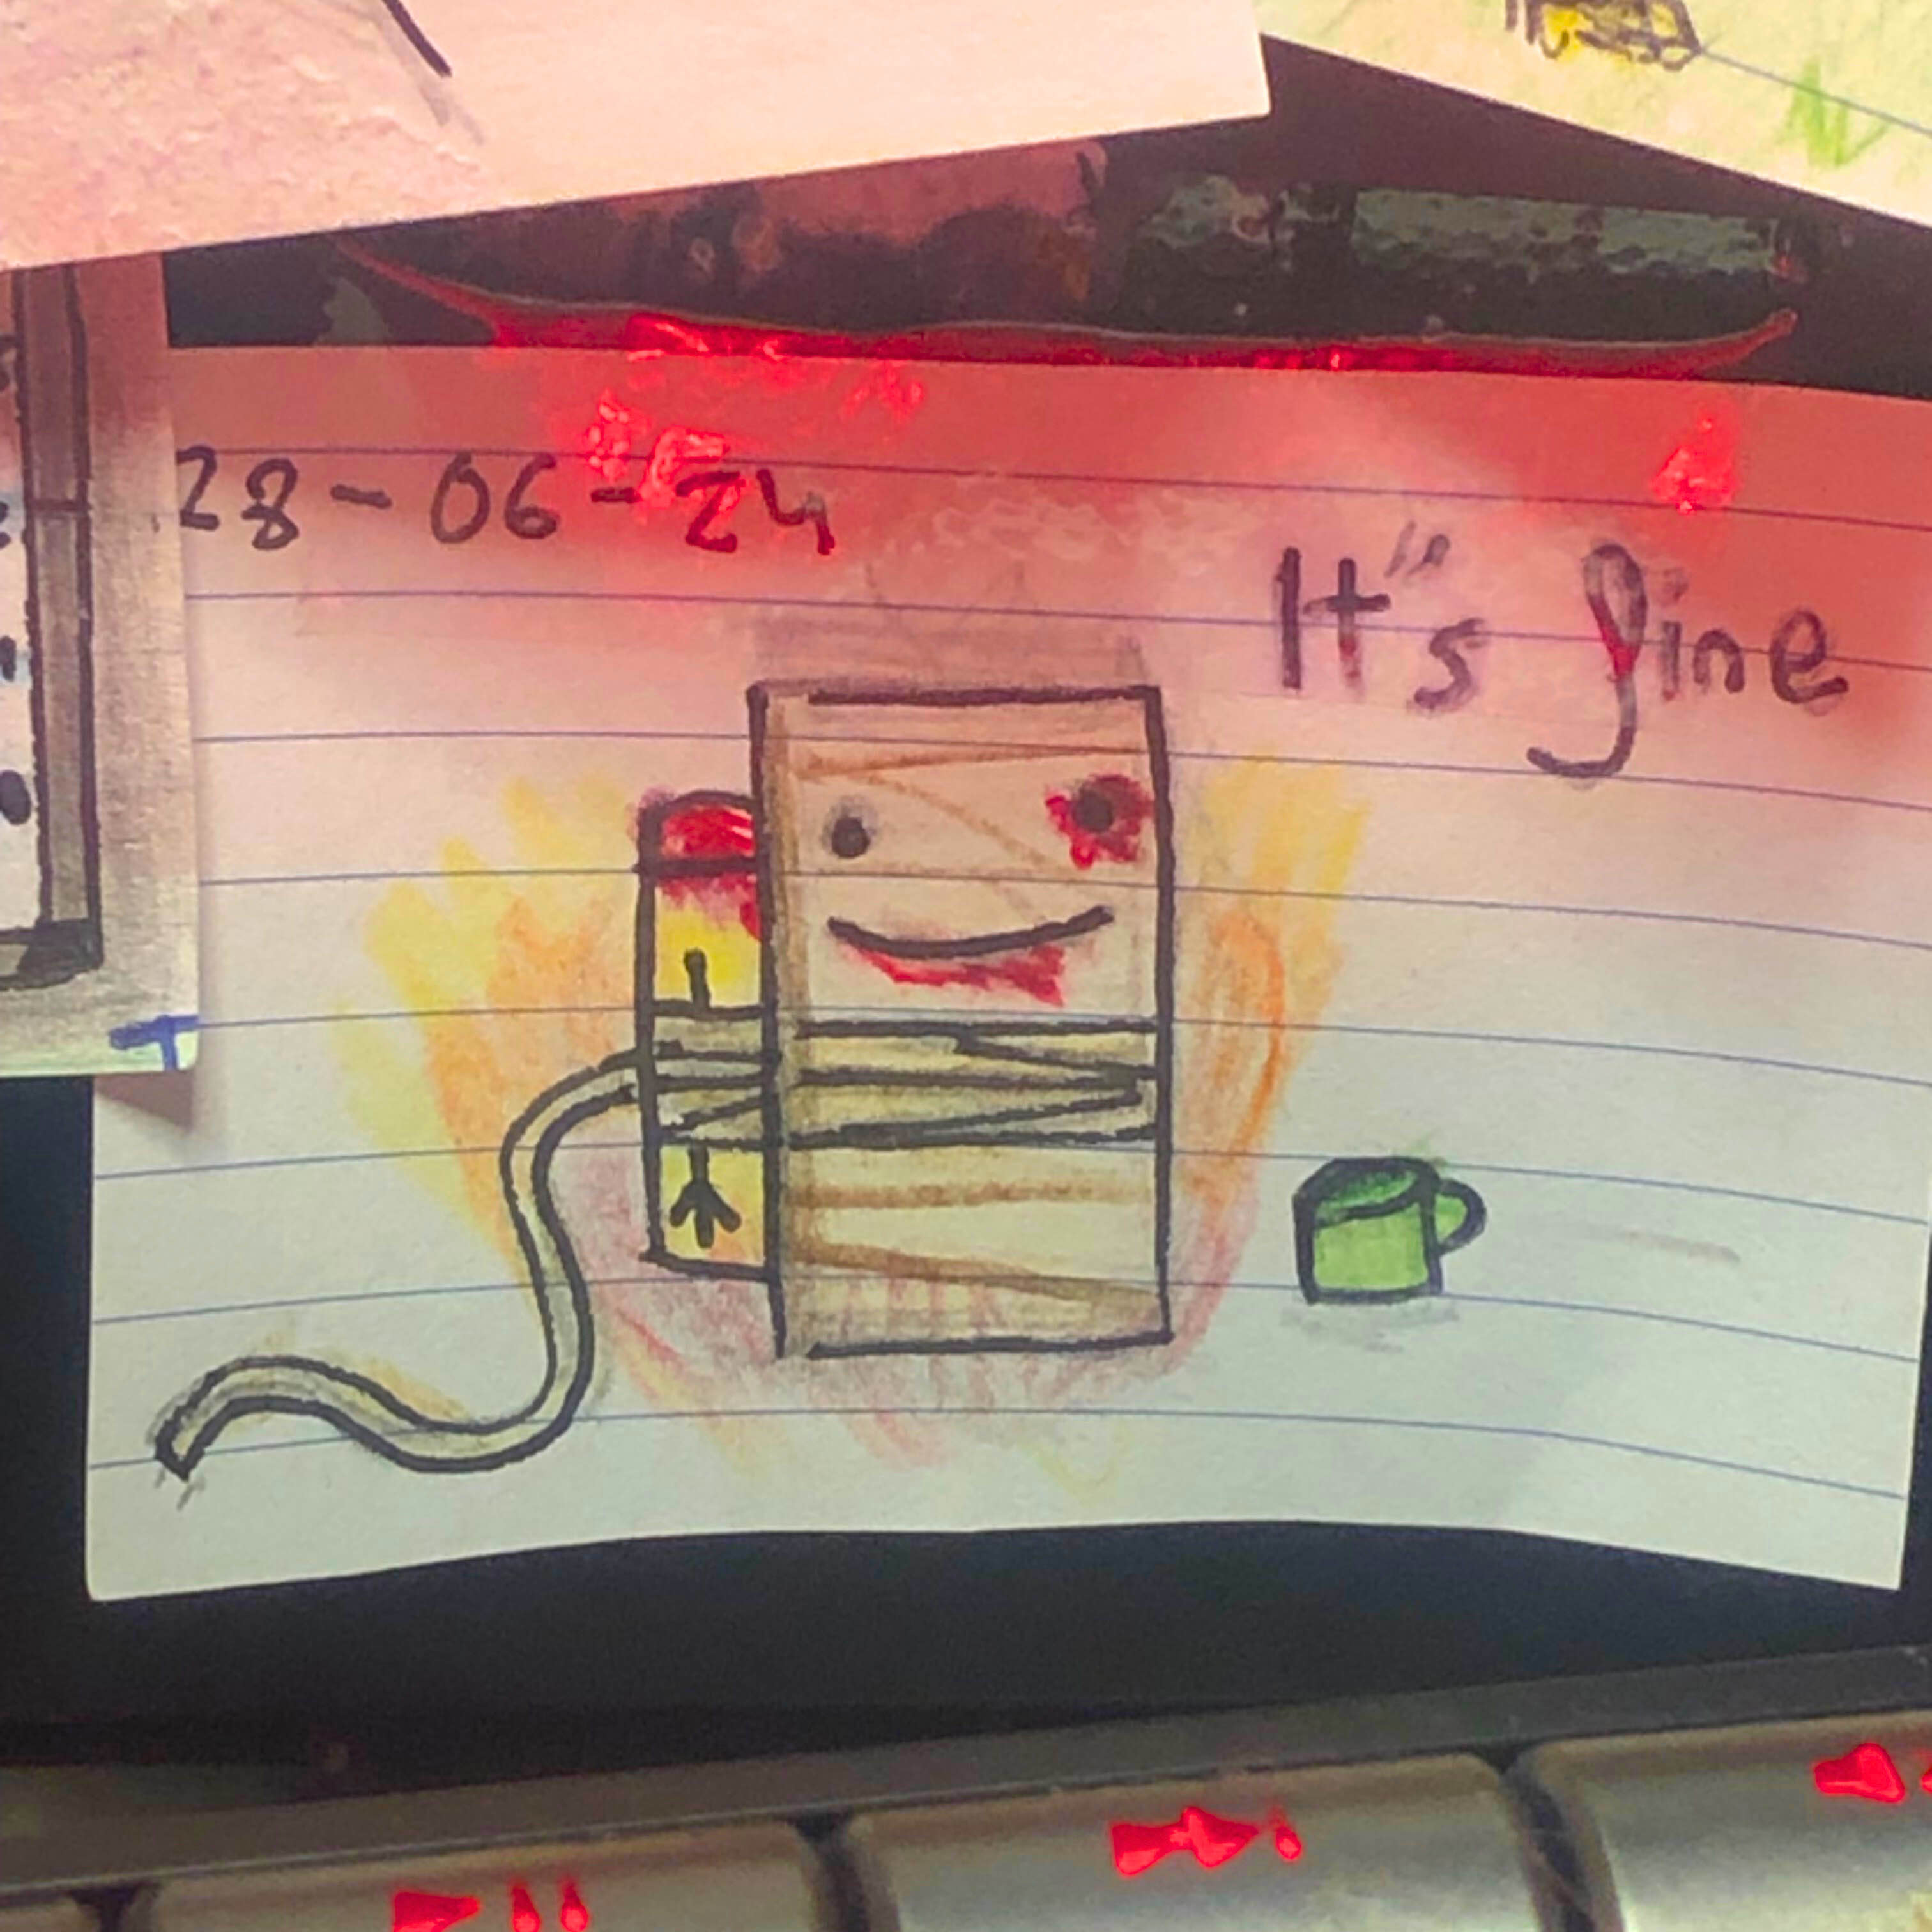 28-06-24
It's fine